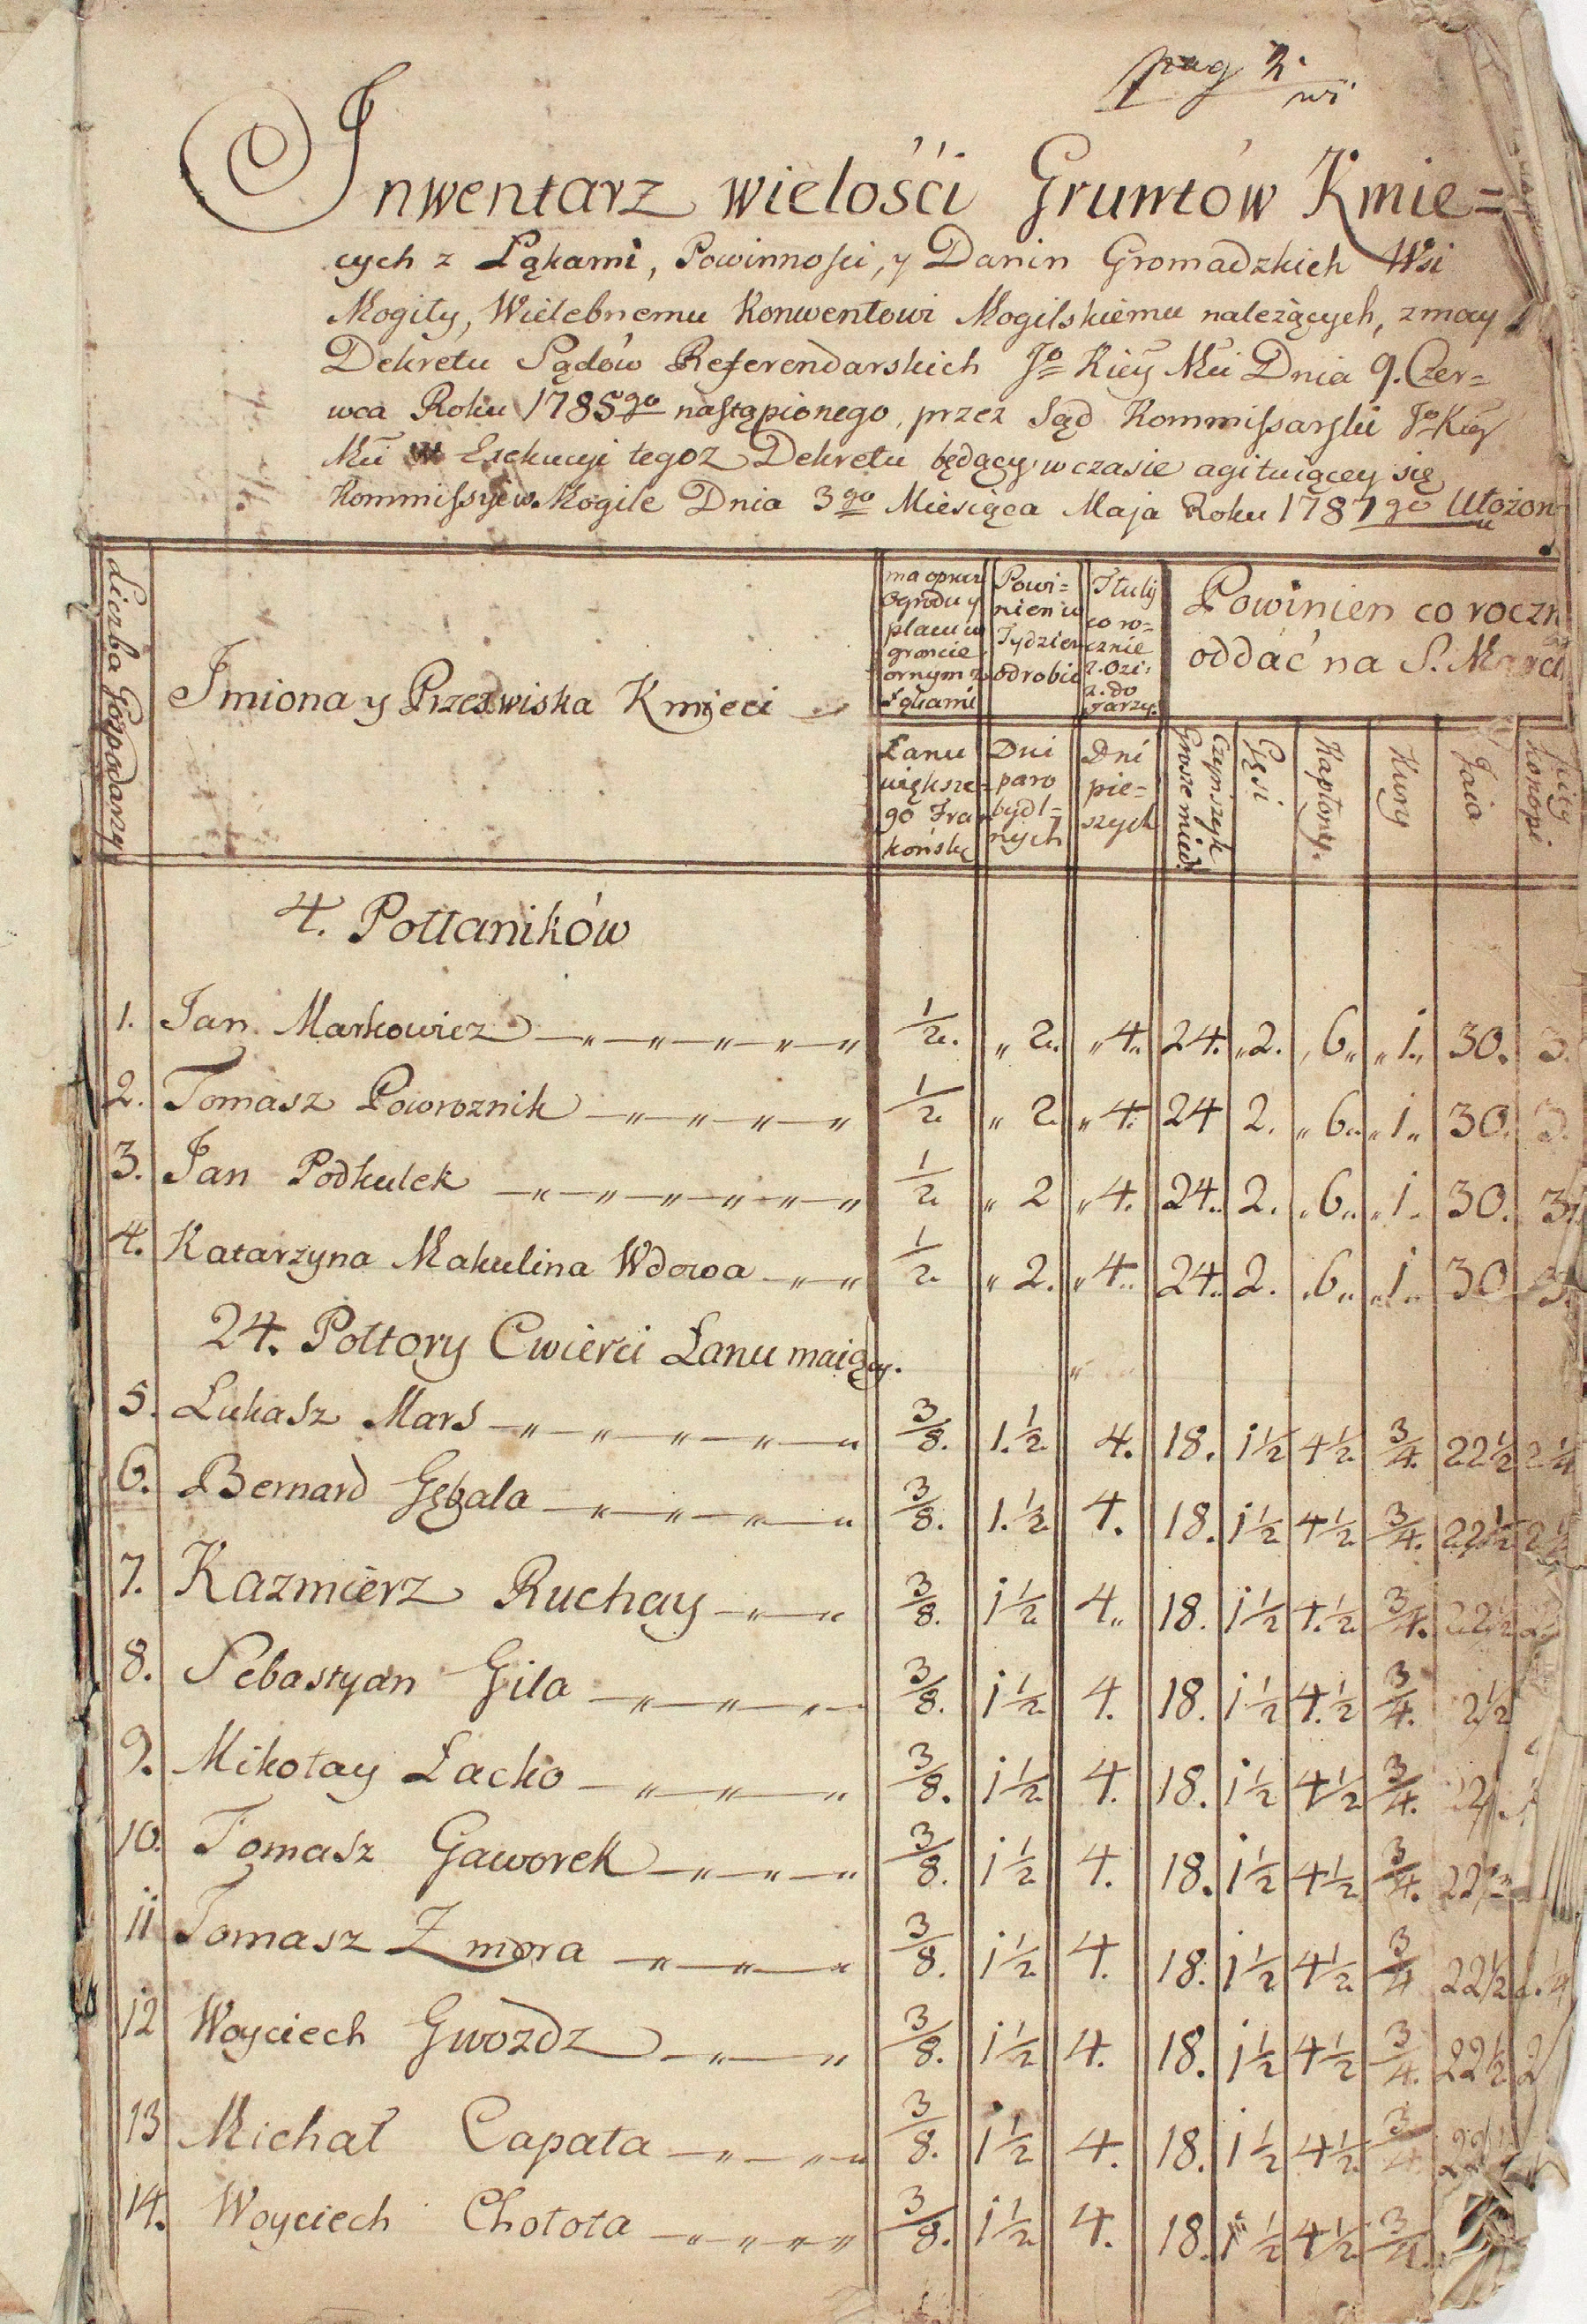 pag 2.
Inwentarz wielości Gruntów Kmie=
cych z Łąkami, Powinności, y Danin Gromadzkich Wsi
Mogiły, Wielebnemu Konwentowi Mogilskiemu należących, z mocy
Dekretu Sądów Referendarskich Jo Kiey Mci Dnia 9. Czer=
wca Roku 1785go nastąpionego, przez Sąd Kommissarski Jo Kiey
Mci w Exekucyi tegoż Dekretu będący w czasie agituiącey się
Kommissyi w Mogile Dnia 3go Miesiąca Maja Roku 1787go Ułożon
Liczba Gospodarzy
Imiona y Przezwiska Kmieci
ma oprucz
Ogrodu y
placu w
groncie
ornym z
Łąkami
Powi=
nien w
Tydzień
odrobić
Tłuki
co ro=
cznie
2. Ozi:
2. do
Jarzy.
Powinien co roczn
oddać na S. Marci
Łanu
większe=
go Fran
końskie
Dni
paro
bydl=
nych
Dni
pie=
szych
Czynszyk
Grosze mied:
Gęsi
Kapłony.
Kury
Jaia
konopi
4. Połłaników
1. Jan Markowicz 1/2. „ 2. „ 4. 24. „ 2. „ 6 „ „ 1 „ 30. 3.
2. Tomasz Poworoznik 1/2 „ 2 „ 4. 24 2. „ 6 „ „ 1 „ 30. 3.
3. Jan Podkulek 1/2 „ 2 „ 4. 24. 2. „ 6 „ „ 1 „ 30. 3.
4. Katarzyna Makulina Wdowa 1/2 „ 2. „ 4. 24. 2. „ 6 „ „ 1 „ 30 3.
24. Połtory Cwierci Łanu maiący.
5. Łukasz Mars 3/8. 1. 1/2 4. 18. 1 1/2 4 1/2 3/4. 22 1/2 2 1/4
6. Bernard Gębala 3/8. 1. 1/2 4. 18. 1 1/2 4 1/2 3/4. 22 1/2 2 1/4
7. Kazmierz Ruchay 3/8. 1 1/2 4. 18. 1 1/2 4. 1/2 3/4. 22 1/2 2
8. Sebastyan Gila 3/8. 1 1/2 4. 18. 1 1/2 4. 1/2 3/4. 2 1/2
9. Mikołay Lacko 3/8. 1 1/2 4. 18. 1 1/2 4 1/2 3/4.
10. Tomasz Gaworek 3/8. 1 1/2 4. 18. 1 1/2 4 1/2 3/4. 22
11 Tomasz Zmora 3/8. 1 1/2 4. 18. 1 1/2 4 1/2 3/4 22 1/2
12 Woyciech Gwozdz 3/8. 1 1/2 4. 18. 1 1/2 4 1/2 3/4. 22 1/2 2
13 Michał Capała 3/8. 1 1/2 4. 18. 1 1/2 4 1/2 3/4 22
14. Woyciech Chołota 3/8. 1 1/2 4. 18. 1 1/2 4 1/2 3/4.